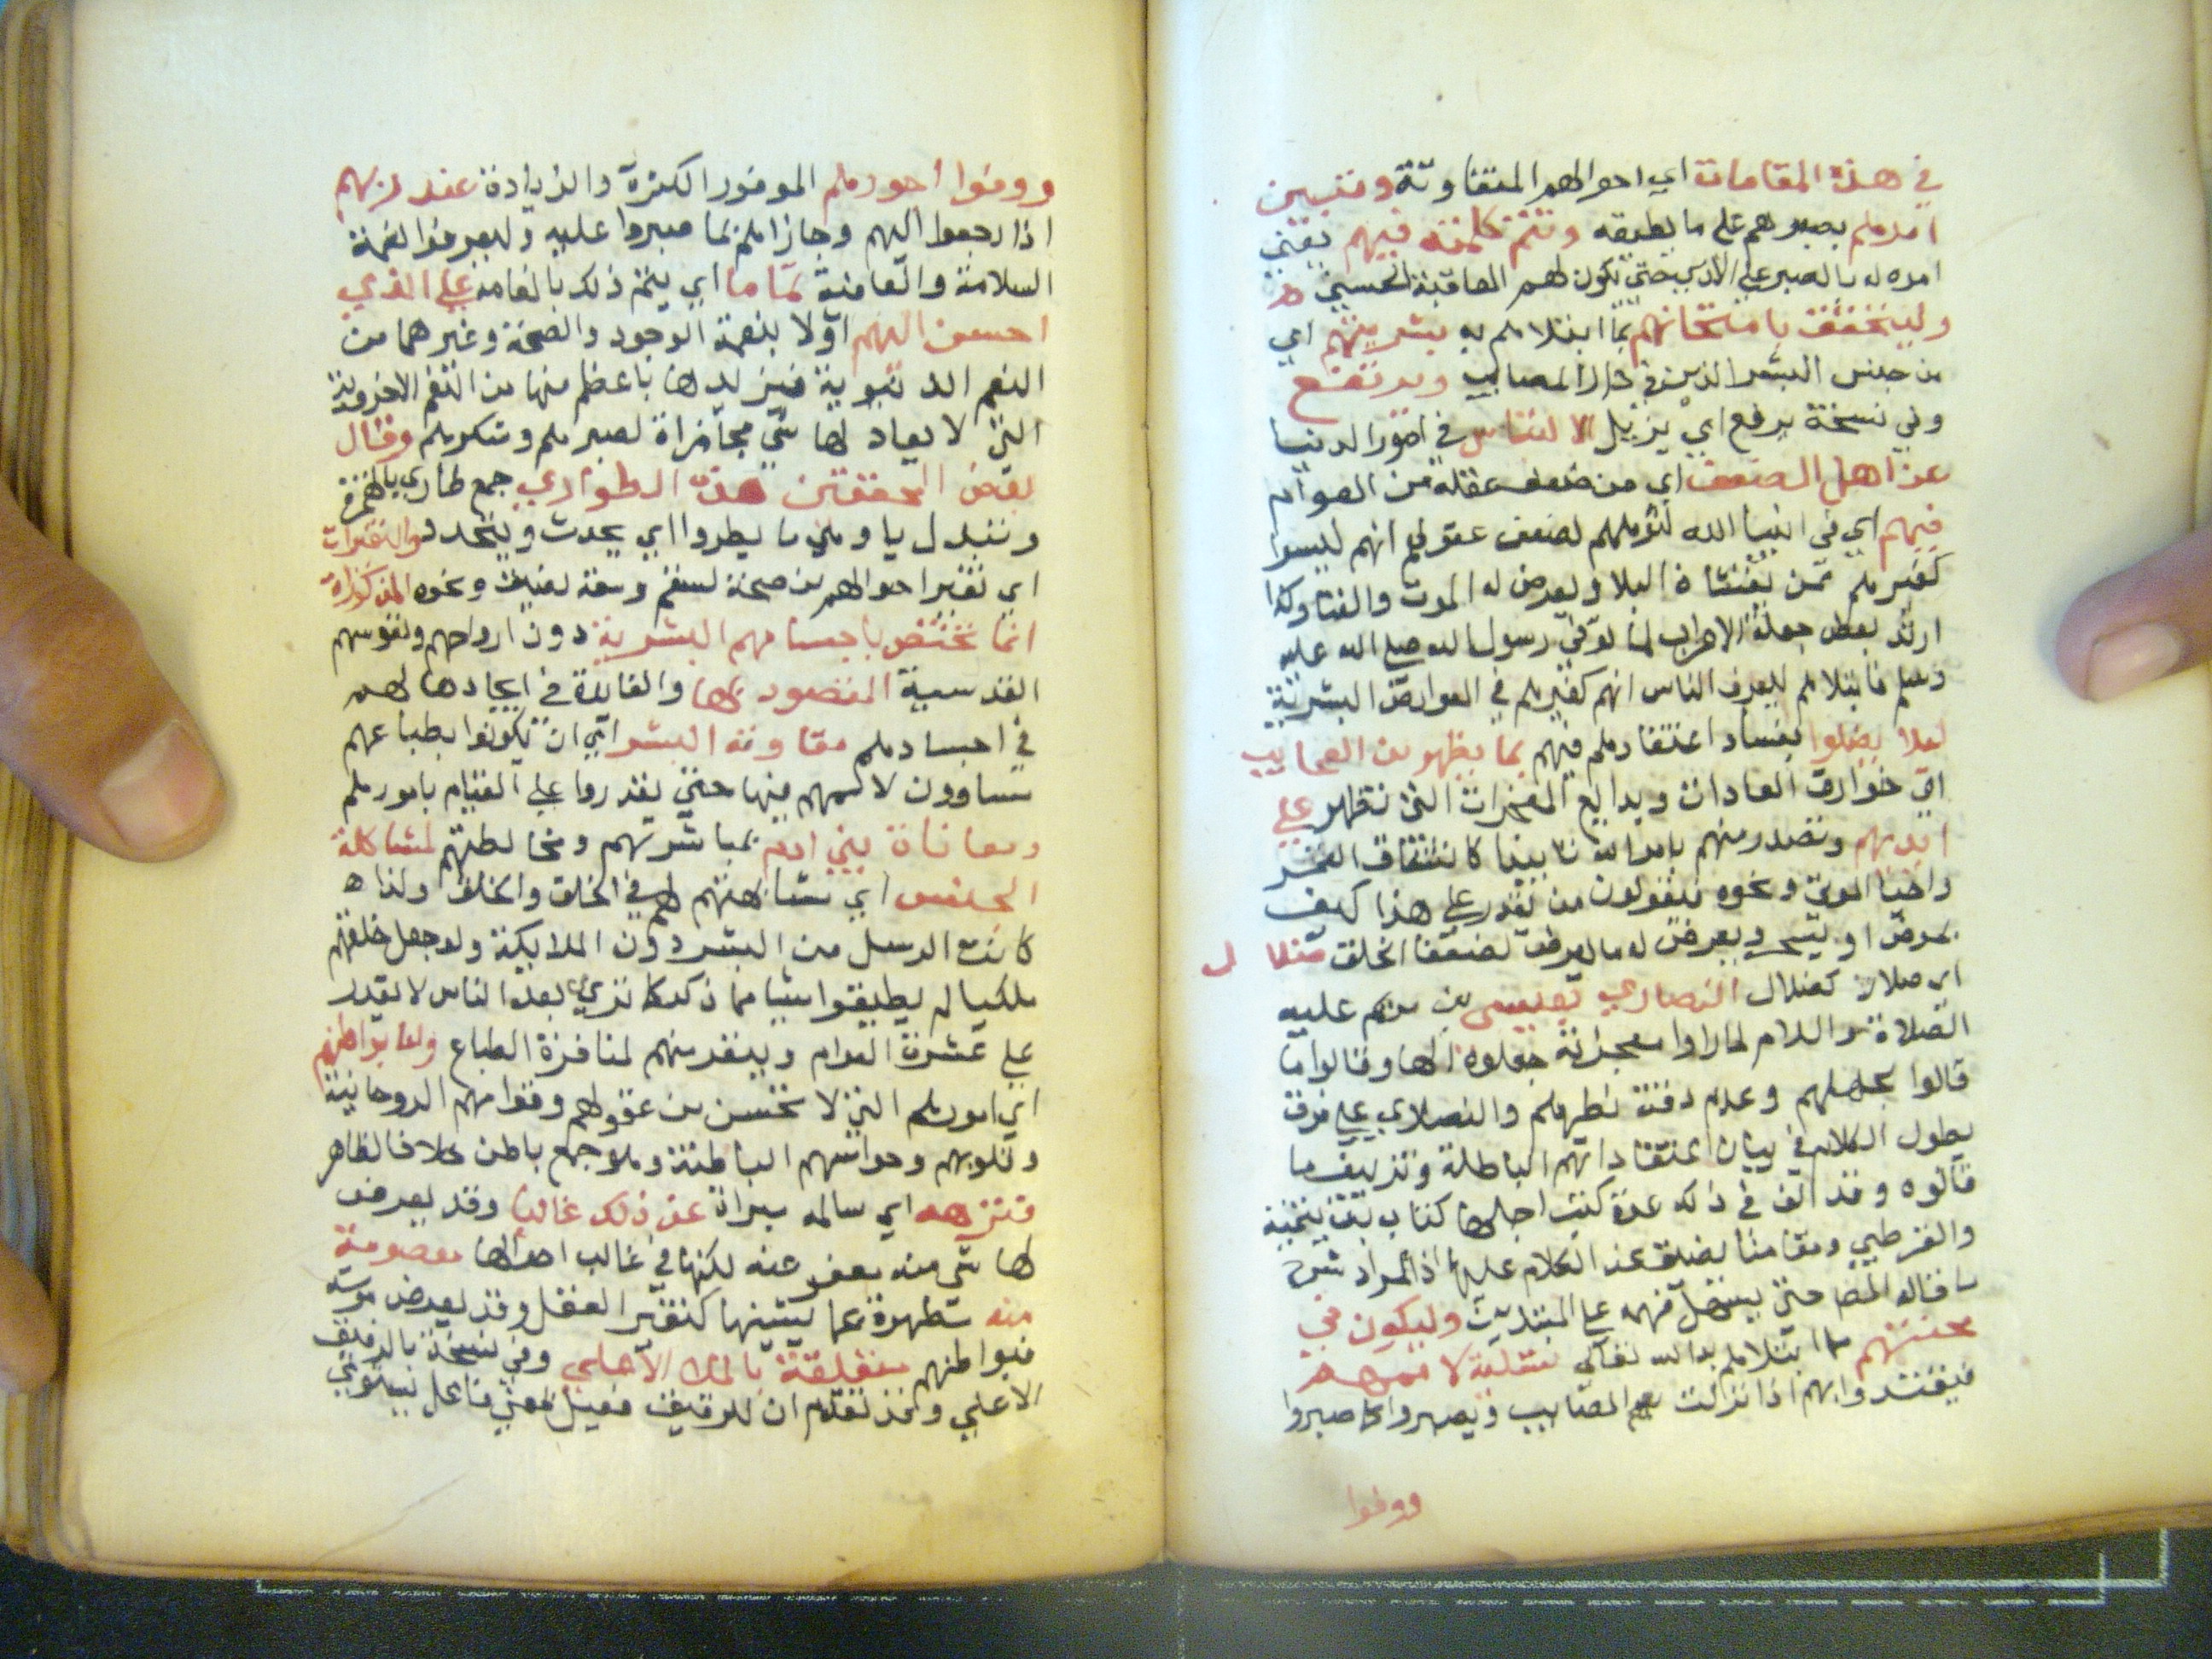 في هذه المقامات اي احوالهم المتفاوتة ويتبين
امرهم بصبرهم على ما يطيقه وتتم كلمته فيهم يعني
امره له بالصبر على الاذى حتى تكون لهم العاقبة الحسنى
وليحقق بامتحانهم بما ابتلاهم به بشريتهم اي
من جنس البشر الذين في دار المصايب ويرتفع
وفي نسخة يرفع اي يزيل الالتباس في امور الدنيا
عن اهل الضعف اي من ضعف عقله من العوام
فيهم اي في انبيا الله لتوهمهم لضعف عقولهم انهم ليسوا
كغيرهم ممن يغشاه البلا ويعرض له الموت والفنا وكذا
ارتد بعض جهلة الاعراب لما توفي رسول الله صلى الله عليه
وسلم فابتلاهم ليعرف الناس انهم كغيرهم في العوارض البشرية
لئلا يضلوا بفساد اعتقادهم فيهم بما يظهر من العجايب
اي خوارق العادات وبدايع المعجزات التي تظهر على
ايديهم وتصدر منهم كانشقاق القمر
واحيا الموتى ونحوه فيقولون من يقدر على هذا كيف
يمرض او ويعرض له ما يعرض لضعفا الخلق ضلال
اي ضلالا كضلال النصارى بعيسى بن مريم عليه
الصلاة والسلام لما راوا معجزاته جعلوه الها وقالوا ما
قالوا بجهلهم وعدم دقة نظرهم والنصارى على فرق
يطول الكلام في بيان اعتقاداتهم الباطلة وتزييف ما
قالوه وقد الف في ذلك عدة كتب اجلها كتاب ابن تيمية
والقرطبي ومقامنا يضيق عن الكلام عليها اذ المراد شرح
ما قاله المص حتى يسهل فهمه على المبتدئين وليكون في
محنتهم بما ابتلاهم به الله تعالى تسلية لاممهم
فيقتدوا بهم اذا نزلت بهم المصايب ويصبروا كما صبروا
ووفوا
ووفوا اجورهم الموفور الكثرة والزيادة عند ربهم
اذا رجعوا اليهم وجازاهم بما صبروا عليه وليعرفوا نعمة
السلامة والعافية تماما اي يتم ذلك بانعامه على الذي
احسن اليهم اولا بنعمة الوجود والصحة وغيرهما من
النعم الدنيوية فيزيدها باعظم منها من النعم الاخروية
التي لا يعاد لها شي مجازاة لصبرهم وشكرهم وقال
بعض المحققين هذه الطواري جمع طاري بالهمز
وتبدل يا وهي ما يطروا اي يحدث ويتجدد والتغيرات
اي تغير احوالهم من صحة لسقم وسعة لضيق ونحوه المذكورة
انما تختص باجسامهم البشرية دون ارواحهم ونفوسهم
القدسية المقصود بها والفايدة في ايجادها لهم
في اجسادهم مقاومة البشر اي ان تكونوا بطباعهم
يساوون لاممهم فيها حتى يقدروا على القيام بامورهم
ومعاناة بني ادم بمباشرتهم ومخالطتهم لمشاكلة
الجنس اي مشابهتهم لهم في الخلق والخلق ولذا
كانت الرسل من البشر دون الملايكة ولو جعل خلقهم
ملكيا لم يطيقوا شيا مما ذكر كما نرى بعض الناس لا يقدر
على عشرة العوام وينفر منهم لمنافرة الطباع واما بواطنهم
اي امورهم التي لا تحس من عقولهم وقواهم الروحانية
وقلوبهم وحواسهم الباطنة وهو جمع باطن خلاف الظاهر
فمنزهة اي سالمه مبراة عن ذلك غالبا وقد يعرض
لها شي منه يعفى عنه لكنها في غالب احوالها معصومة
منه مطهرة عما يشينها كتغير العقل وقد يعرض
فبواطنهم متعلقة بالملا الاعلى وفي نسخة بالرفيق
الاعلى وقد تقدم ان الرفيق فعيل بمعنى فاعل يستوي